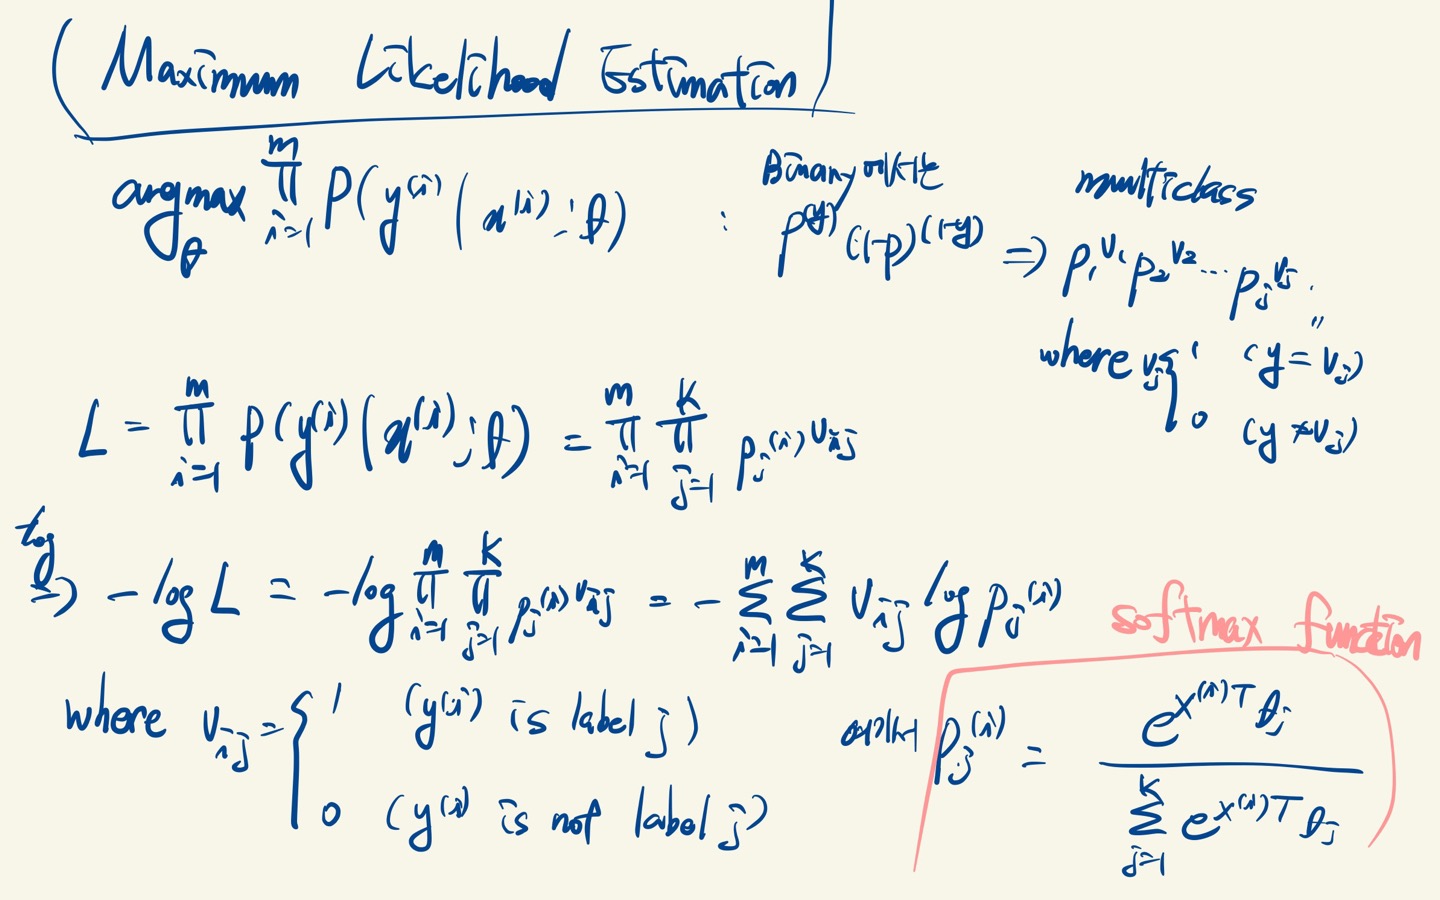 Maximum Likelihood Estimation
argmax_θ ∏_{i=1}^{m} P(y^{(i)} | x^{(i)} ; θ) : Binary에서는 p^{(y)} (1-p)^{(1-y)} ⇒ multiclass p_1^{v_1} p_2^{v_2} ... p_j^{v_j} .
where v_j { 1 (y = v_j)
0 (y ≠ v_j)
L = ∏_{i=1}^{m} P(y^{(i)} | x^{(i)} ; θ) = ∏_{i=1}^{m} ∏_{j=1}^{K} p_j^{(i) v_{ij}}
log ⇒ - log L = - log ∏_{i=1}^{m} ∏_{j=1}^{K} p_j^{(i) v_{ij}} = - ∑_{i=1}^{m} ∑_{j=1}^{K} v_{ij} log p_j^{(i)}
softmax function
where v_{ij} = { 1 (y^{(i)} is label j)
0 (y^{(i)} is not label j)
여기서 p_j^{(i)} = e^{x^{(i)T} θ_j} / ∑_{j=1}^{K} e^{x^{(i)T} θ_j}